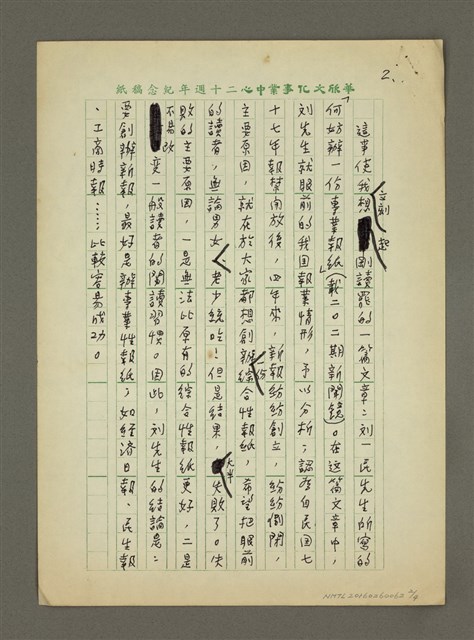 華欣文化事業中心二十週年紀念稿紙
2.
這事使我想立刻起剛讀罷的一篇文章：刘一民先生所寫的
「何妨辦一份專業報紙」（載二〇二期新聞鏡）。在這篇文章中，
刘先生就眼前的我国報業情形，予以分析；認為自民国七
十七年報禁開放後，四年來，新報紛紛創立，紛紛倒閉，
主要原因，就在於大家都想創辦份綜合性報紙，希望把眼前
的讀者，無論男女、老少統吃！但是結果，大半失敗了。失
敗的主要原因，一是無法比原有的綜合性報紙更好，二是
不易改變一般讀者的閱讀習慣。因此，刘先生的結論是：
要創辦新報，最好是辦專業性報紙，如經濟日報、民生報
、工商時報……比較容易成功。
NMTL20160260062 2/4